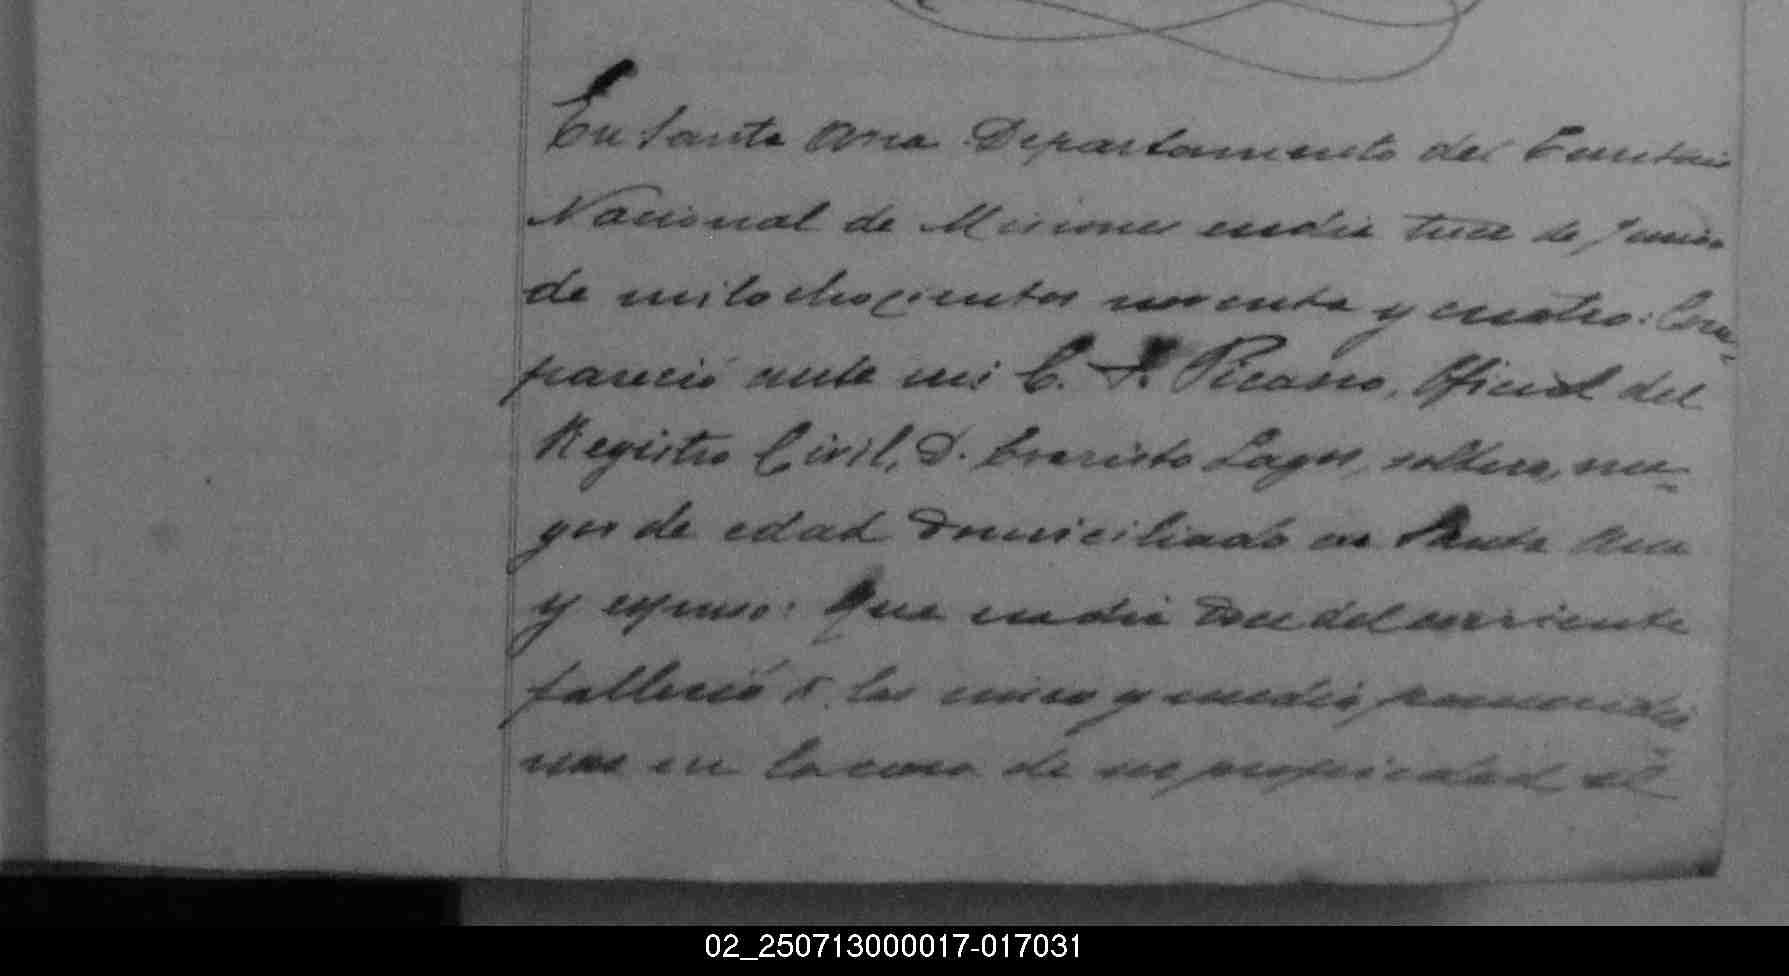 En Santa Ana Departamento del Territorio
Nacional de Misiones endia trece de Junio
de mil ochocientos noventa y cuatro: Com-
pareció ante mi C. F. Picasso, Oficial del
Registro Civil, D. Evaristo Lagos, soltero, ma-
yor de edad domiciliado en Santa Ana
y expuso: Que endia doce del corriente
falleció á las cinco y media
en la casa de su propiedad el
02_250713000017-017031